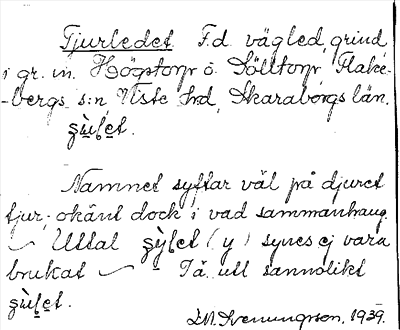 Tjurledet F.d. vägled, grind,
i gr. m. Högstorp o. Sölltorp, Flake-
-bergs s:n, Viste hrd, Skaraborgs län.
Namnet syftar väl på djuret
tjur; okänt dock i vad sammanhang.
Uttal (y) synes ej vara
brukat Tä. utt sannolikt
J.M. Svenungson. 1939.